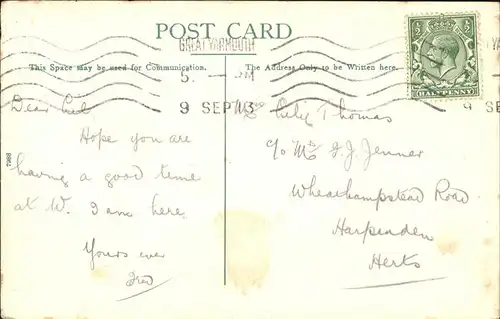 POST CARD
GREAT YARMOUTH
This Space may be used for Communication.
The Address Only to be Written here.
5. - PM
9 SEP 13
HALFPENNY
Dear
Hope you are
having a good time
at W. I am here.
Yours ever
Fred
Thomas
c/o Mrs J. J. Jenner
Wheathampstead Road
Harpenden
Herts